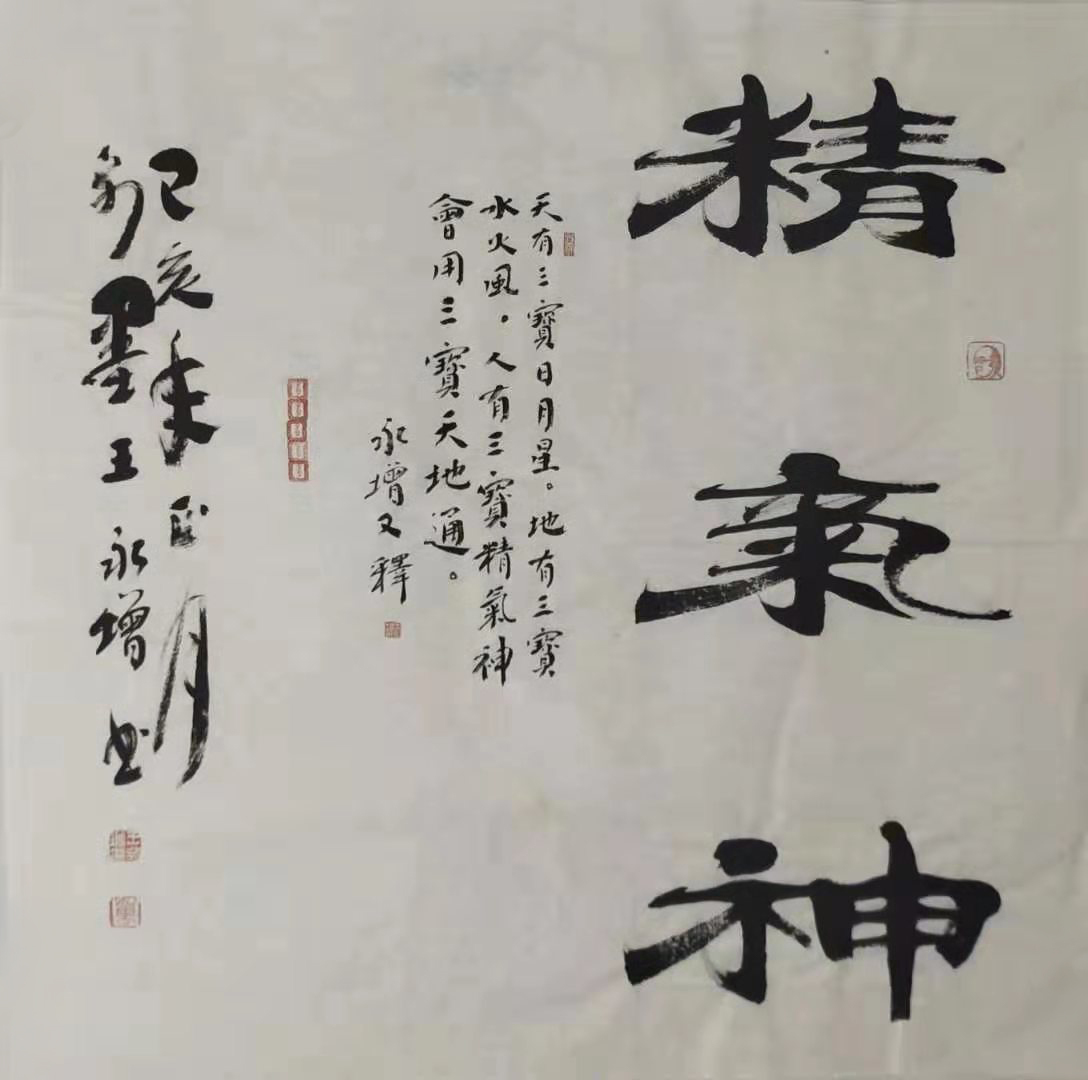 精氣神
天有三寶日月星。地有三寶
水火風。人有三寶精氣神
會用三寶天地通。
永增又釋
己亥年正月
墨王永增书